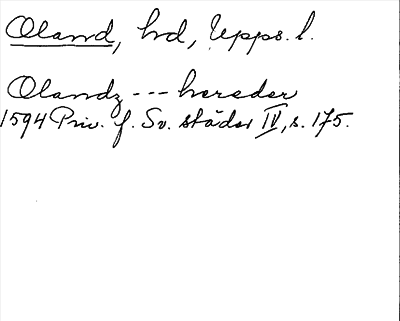 Oland, hd, Upps. l.
Olandz --- hereder
1594 Priv. f. Sv. städer IV, s. 175.